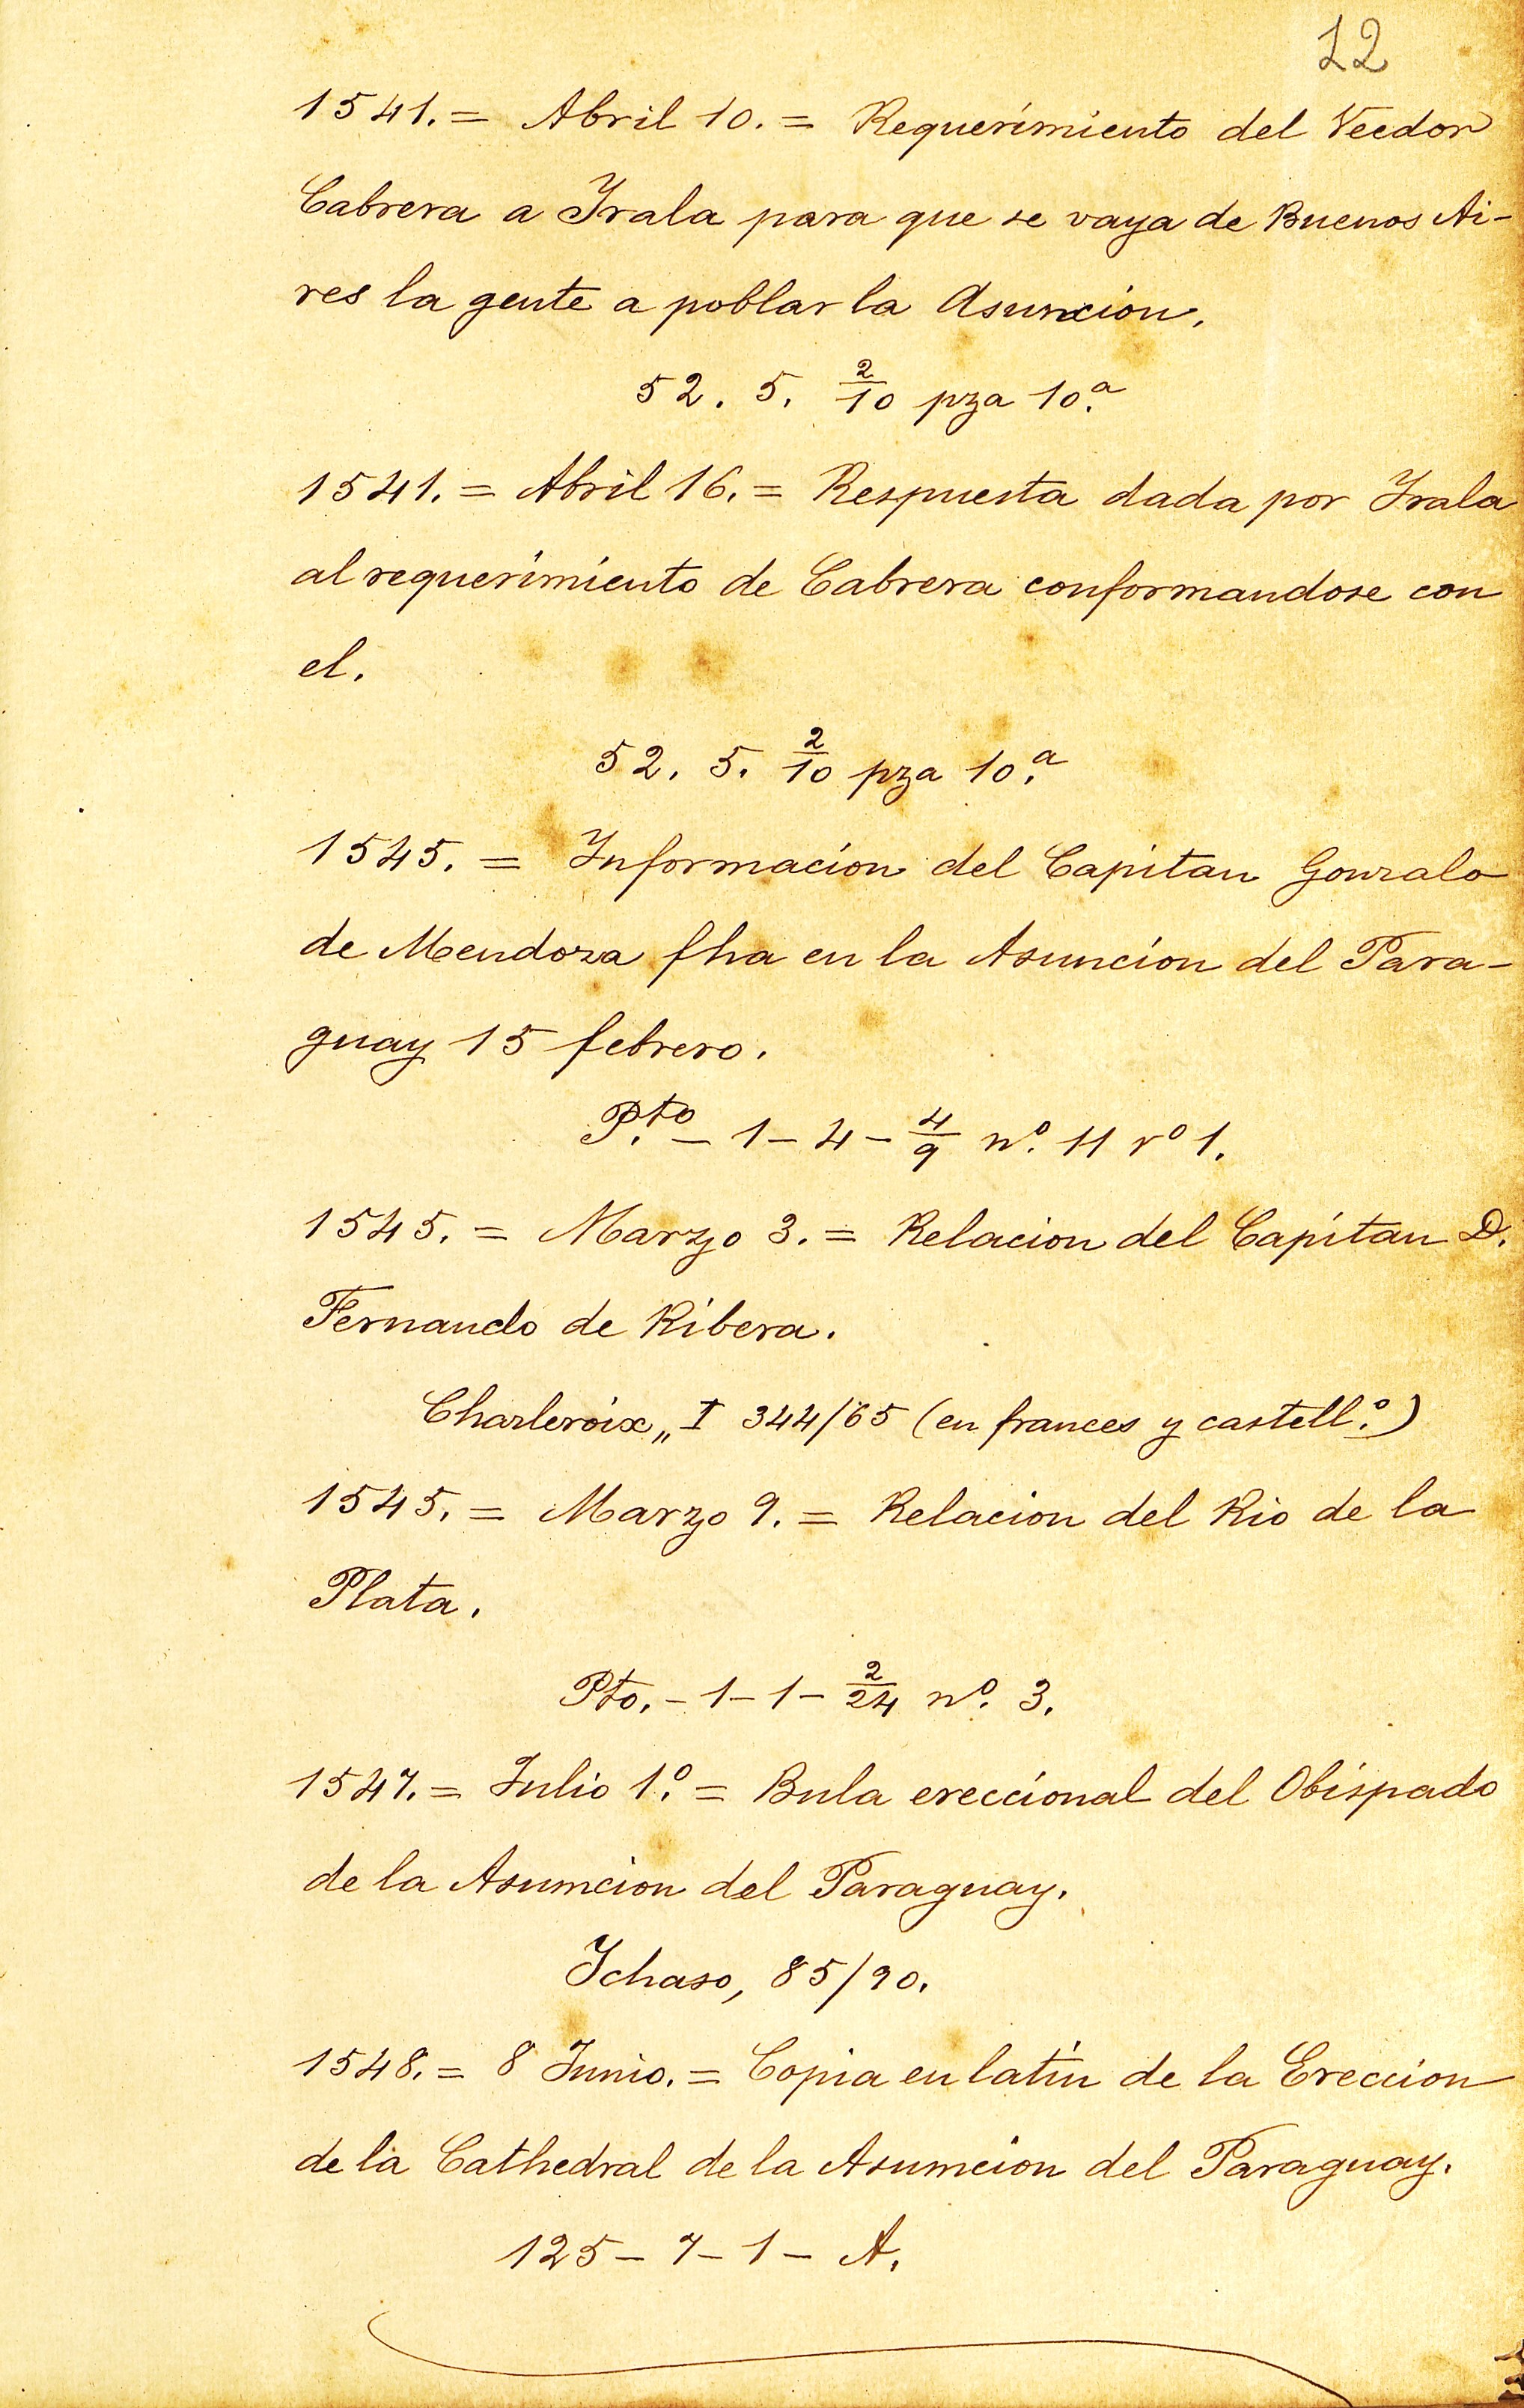 12
1541. = Abril 10. = Requerimiento del Veedor
Cabrera a Yrala para que se vaya de Buenos Ai-
res la gente a poblar la Asuncion.
52. 5. 2/10 pza 10.ª
1541. = Abril 16. = Respuesta dada por Yrala
al requerimiento de Cabrera conformandose con
el.
52. 5. 2/10 pza 10.ª
1545. = Informacion del Capitan Gonzalo
de Mendoza fha en la Asuncion del Para-
guay 15 febrero.
P.to - 1 - 4 - 4/9 nº. 11 rº 1.
1545. = Marzo 3. = Relacion del Capitan D.
Fernando de Ribera.
Charleroix,, I 344/65 (en frances y castell.º)
1545. = Marzo 9. = Relacion del Rio de la
Plata.
Pto. - 1 - 1 - 2/24 nº. 3.
1547. = Julio 1.º = Bula ereccional del Obispado
de la Asumcion del Paraguay.
Ychaso, 85/90.
1548. = 8 Junio. = Copia en latin de la Ereccion
de la Cathedral de la Asumcion del Paraguay.
125 - 7 - 1 - A.